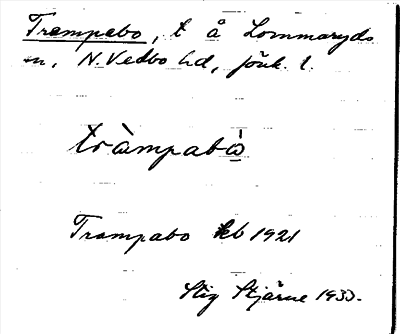 Trampabo, t å Lommaryds
sn, N. Vedbo hd, Jönk. l.
tràmpabò
Trampabo kb 1921
Stig Stjärne 1933.